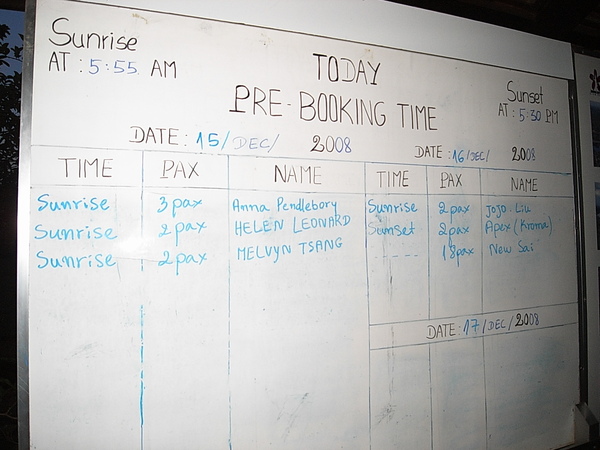 Sunrise
AT : 5:55 AM
TODAY
PRE-BOOKING TIME
Sunset
AT : 5:30 PM
DATE: 15/DEC/ 2008
TIME PAX NAME
Sunrise 3pax Anna Pendlebory
Sunrise 2pax HELEN LEONARD
Sunrise 2pax MELVYN TSANG
DATE: 16/DEC/ 2008
TIME PAX NAME
Sunrise 2pax JoJo Liu
Sunset 2pax Apex (Kroma)
----- 18pax New Sai
DATE: 17/DEC/2008